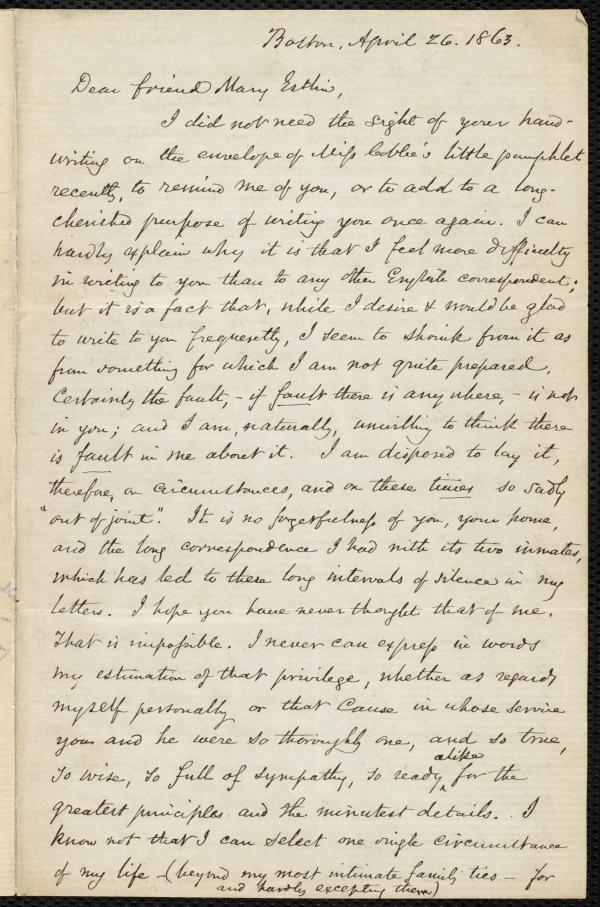 Boston, April 26. 1863.
Dear friend Mary Estlin,
I did not need the sight of your hand-
writing on the envelope of Miss Cobbe's little pamphlet
recently, to remind me of you, or to add to a long-
cherished purpose of writing you once again. I can
hardly explain why it is that I feel more difficulty
in writing to you than to any other English correspondent;
but it is a fact that, while I desire & would be glad
to write to you frequently, I seem to shrink from it as
from something for which I am not quite prepared.
Certainly the fault, - if fault there is anywhere, - is not
in you; and I am, naturally, unwilling to think there
is fault in me about it. I am disposed to lay it,
therefore, on circumstances, and on these times so sadly
"out of joint". It is no forgetfulness of you, your home,
and the long correspondence I had with its two inmates,
which has led to these long intervals of silence in my
letters. I hope you have never thought that of me.
That is impossible. I never can express in words
my estimation of that privilege, whether as regards
myself personally or that Cause in whose service
you and he were so thoroughly one, and so true,
so wise, so full of sympathy, so ready alike for the
greatest principles and the minutest details. I
know not that I can select one single circumstance
of my life - (beyond my most intimate family ties - for
and hardly excepting them)